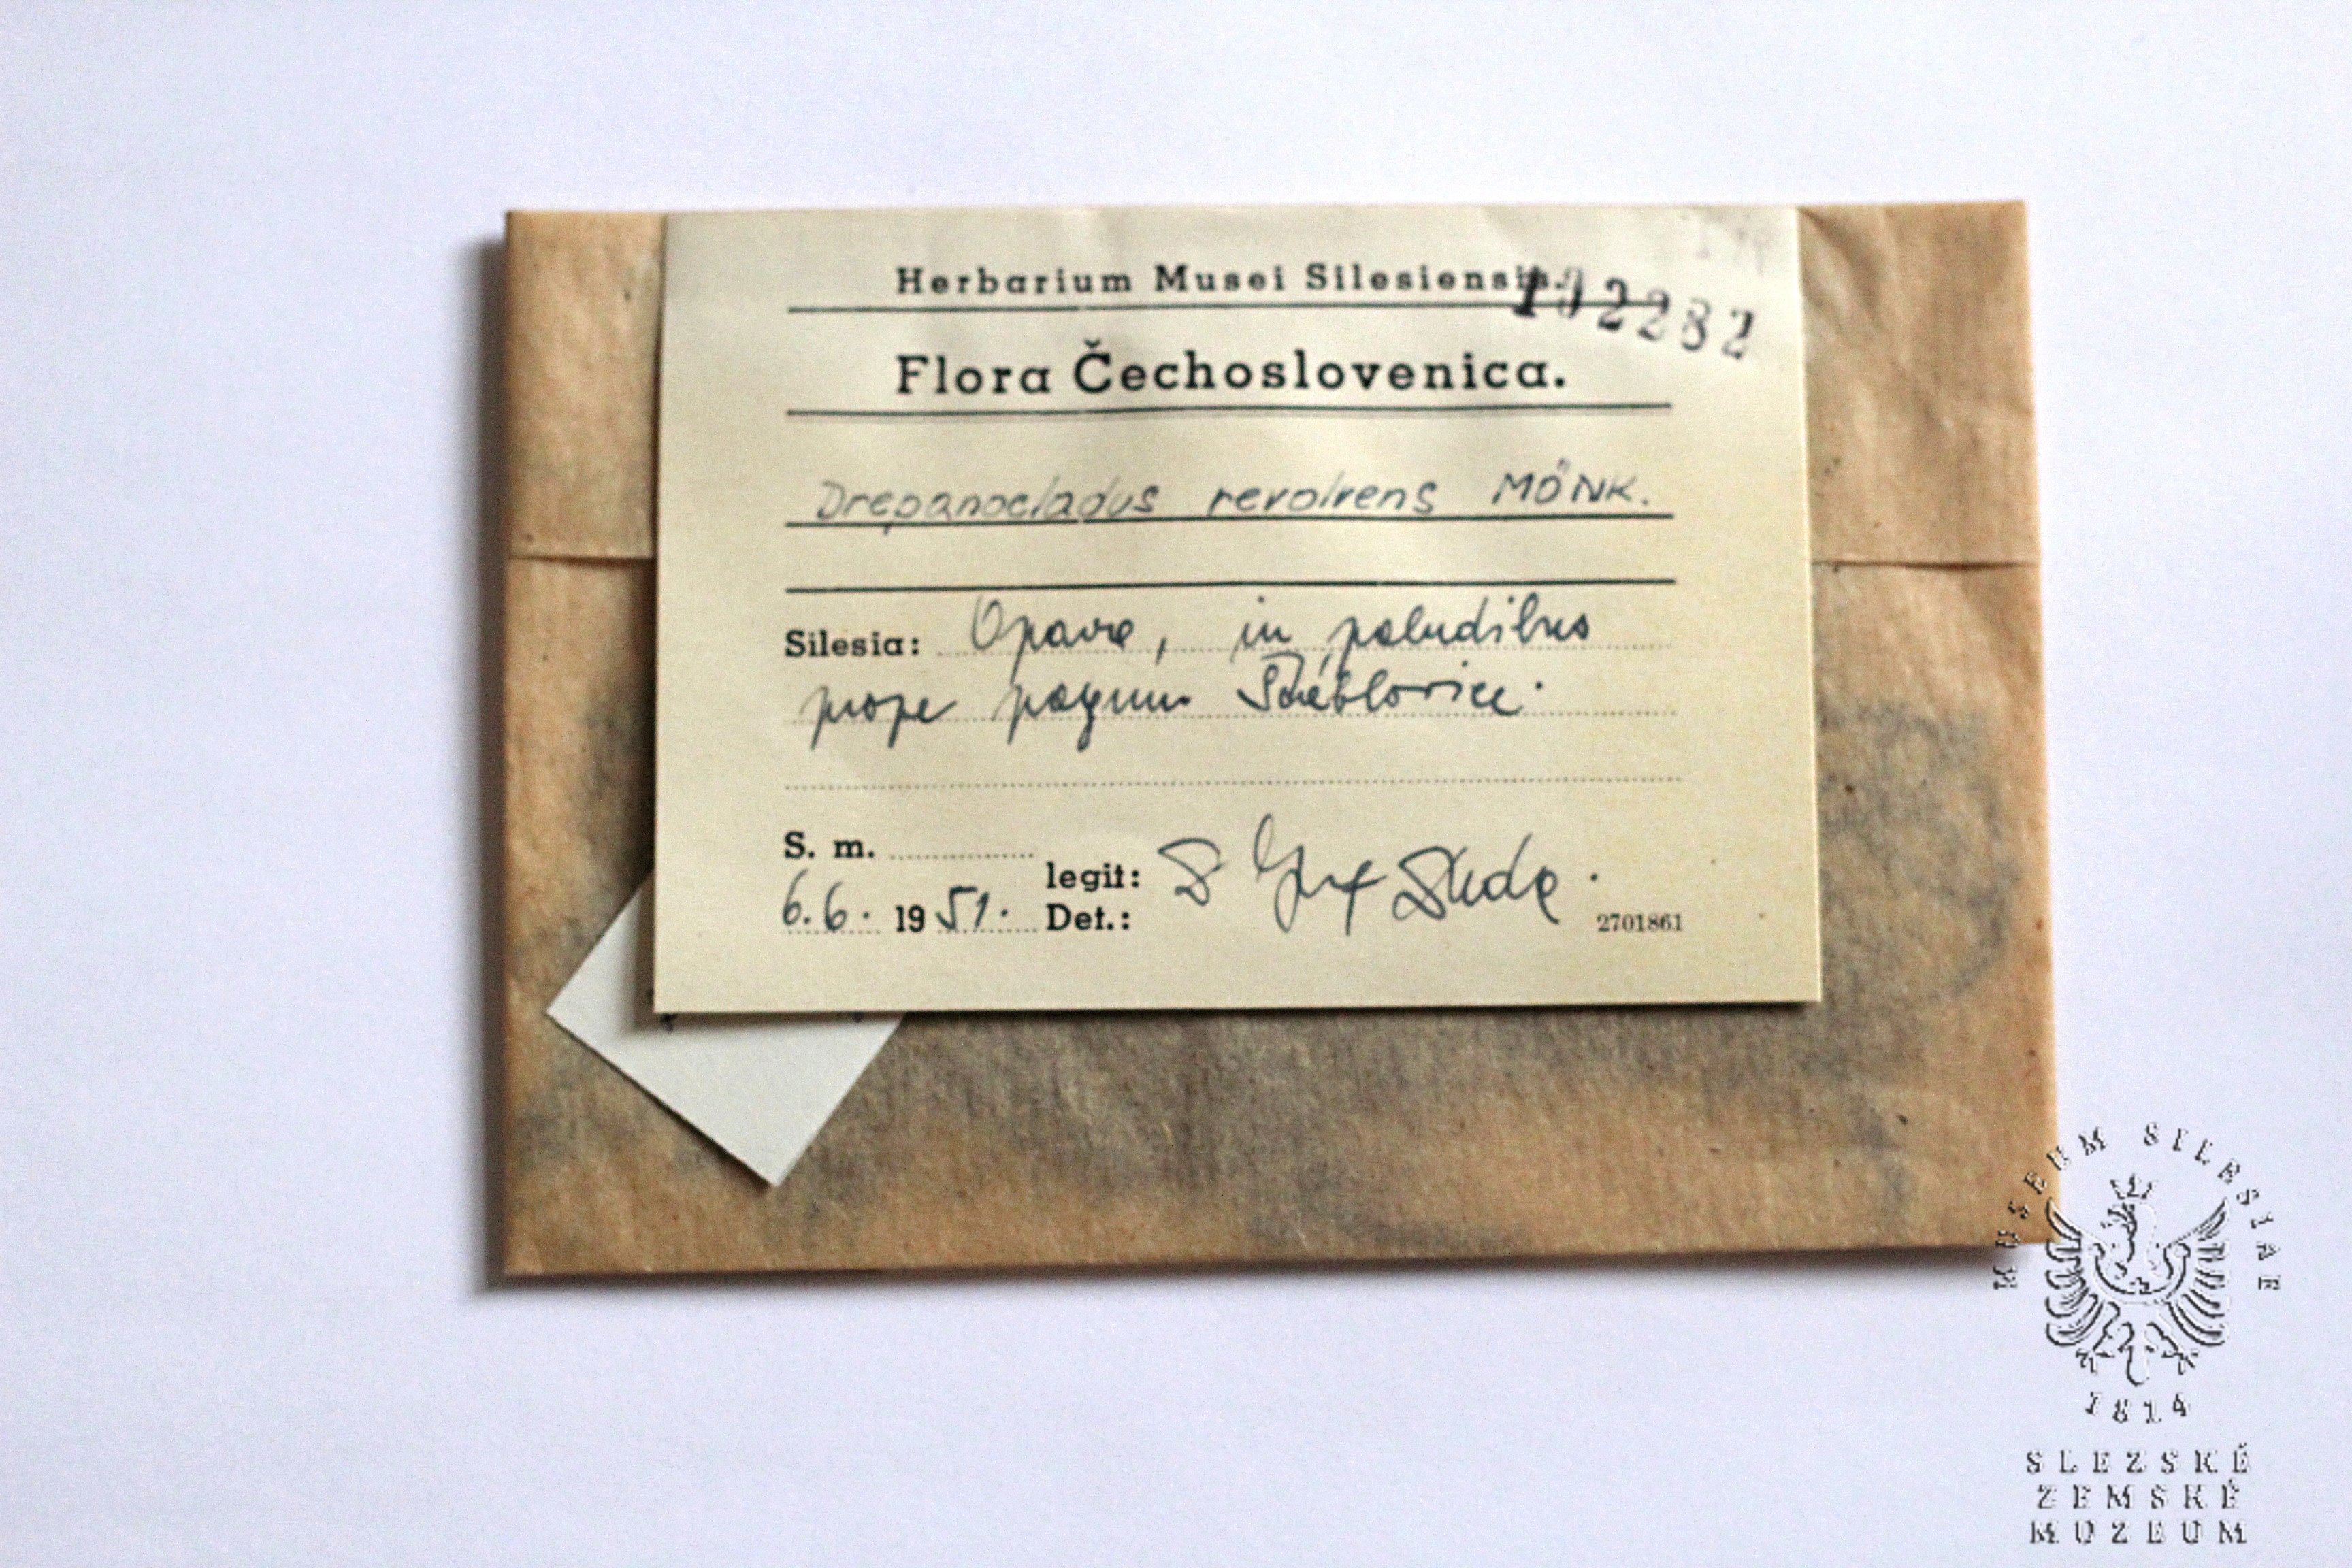 Herbarium Musei Silesiensis.
102282
Flora Čechoslovenica.
Drepanocladus revolvens MÖNK.
Silesia: Opava, in paludibus
prope pagum
S. m.
6.6. 1951.
legit:
Det.:
2701861
MUSEUM SILESIAE
1814
SLEZSKÉ
ZEMSKÉ
MUZEUM